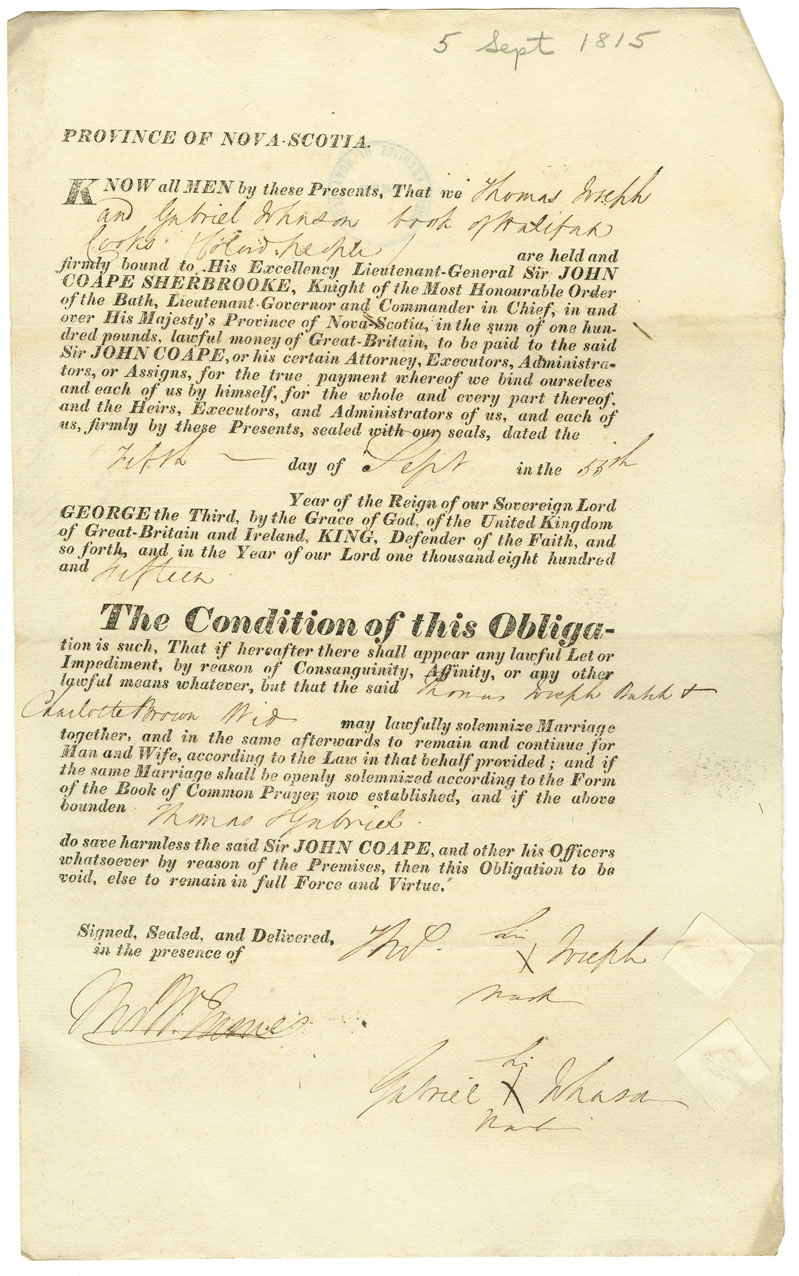 5 Sept 1815
PROVINCE OF NOVA-SCOTIA.
KNOW all MEN by these Presents, That we Thomas Joseph
and Gabriel Johnson both of Halifax
Cooks. (Colord people) are held and
firmly bound to His Excellency Lieutenant-General Sir JOHN
COAPE SHERBROOKE, Knight of the Most Honourable Order
of the Bath, Lieutenant Governor and Commander in Chief, in and
over His Majesty's Province of Nova-Scotia, in the sum of one hun-
dred pounds, lawful money of Great-Britain, to be paid to the said
Sir JOHN COAPE, or his certain Attorney, Executors, Administra-
tors, or Assigns, for the true payment whereof we bind ourselves
and each of us by himself, for the whole and every part thereof,
and the Heirs, Executors, and Administrators of us, and each of
us, firmly by these Presents, sealed with our seals, dated the
Fifth — day of Sept in the 55th
Year of the Reign of our Sovereign Lord
GEORGE the Third, by the Grace of God, of the United Kingdom
of Great-Britain and Ireland, KING, Defender of the Faith, and
so forth, and in the Year of our Lord one thousand eight hundred
and fifteen.
The Condition of this Obliga-
tion is such, That if hereafter there shall appear any lawful Let or
Impediment, by reason of Consanguinity, Affinity, or any other
lawful means whatever, but that the said Thomas Joseph Batch &
Charlotte Brown Wid may lawfully solemnize Marriage
together, and in the same afterwards to remain and continue for
Man and Wife, according to the Law in that behalf provided; and if
the same Marriage shall be openly solemnized according to the Form
of the Book of Common Prayer now established, and if the above
bounden Thomas & Gabriel.
do save harmless the said Sir JOHN COAPE, and other his Officers
whatsoever by reason of the Premises, then this Obligation to be
void, else to remain in full Force and Virtue.
Signed, Sealed, and Delivered,
in the presence of
his
Thos. X Joseph
mark
his
Gabriel X Johnson
mark